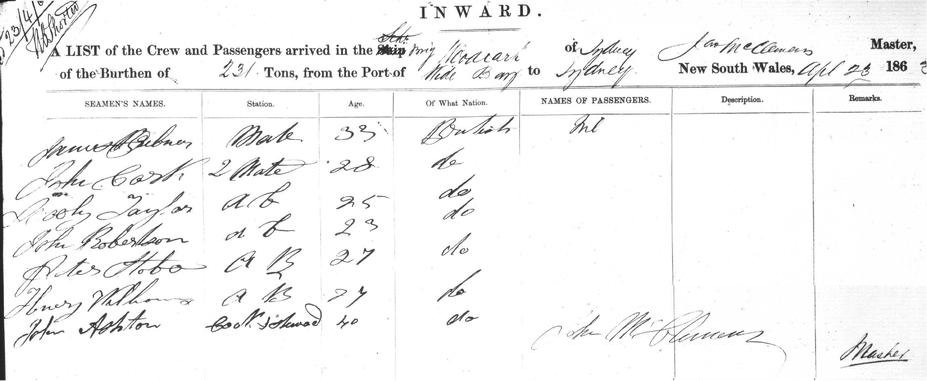 23/4/6
INWARD.
A LIST of the Crew and Passengers arrived in the Ship Brig of Sydney Jas McClemens Master,
of the Burthen of 231 Tons, from the Port of Wide Bay to Sydney New South Wales, Apl 23 1863
SEAMEN'S NAMES. Station. Age. Of What Nation. NAMES OF PASSENGERS. Description. Remarks.
James Mate 33 British Nil
John Cook 2 Mate 28 do
Taylor a b 25 do
John Robertson a b 23 do
Peter A B 27 do
Henry A B 27 do
John Ashton Cook & 40 do
McClemens
Master